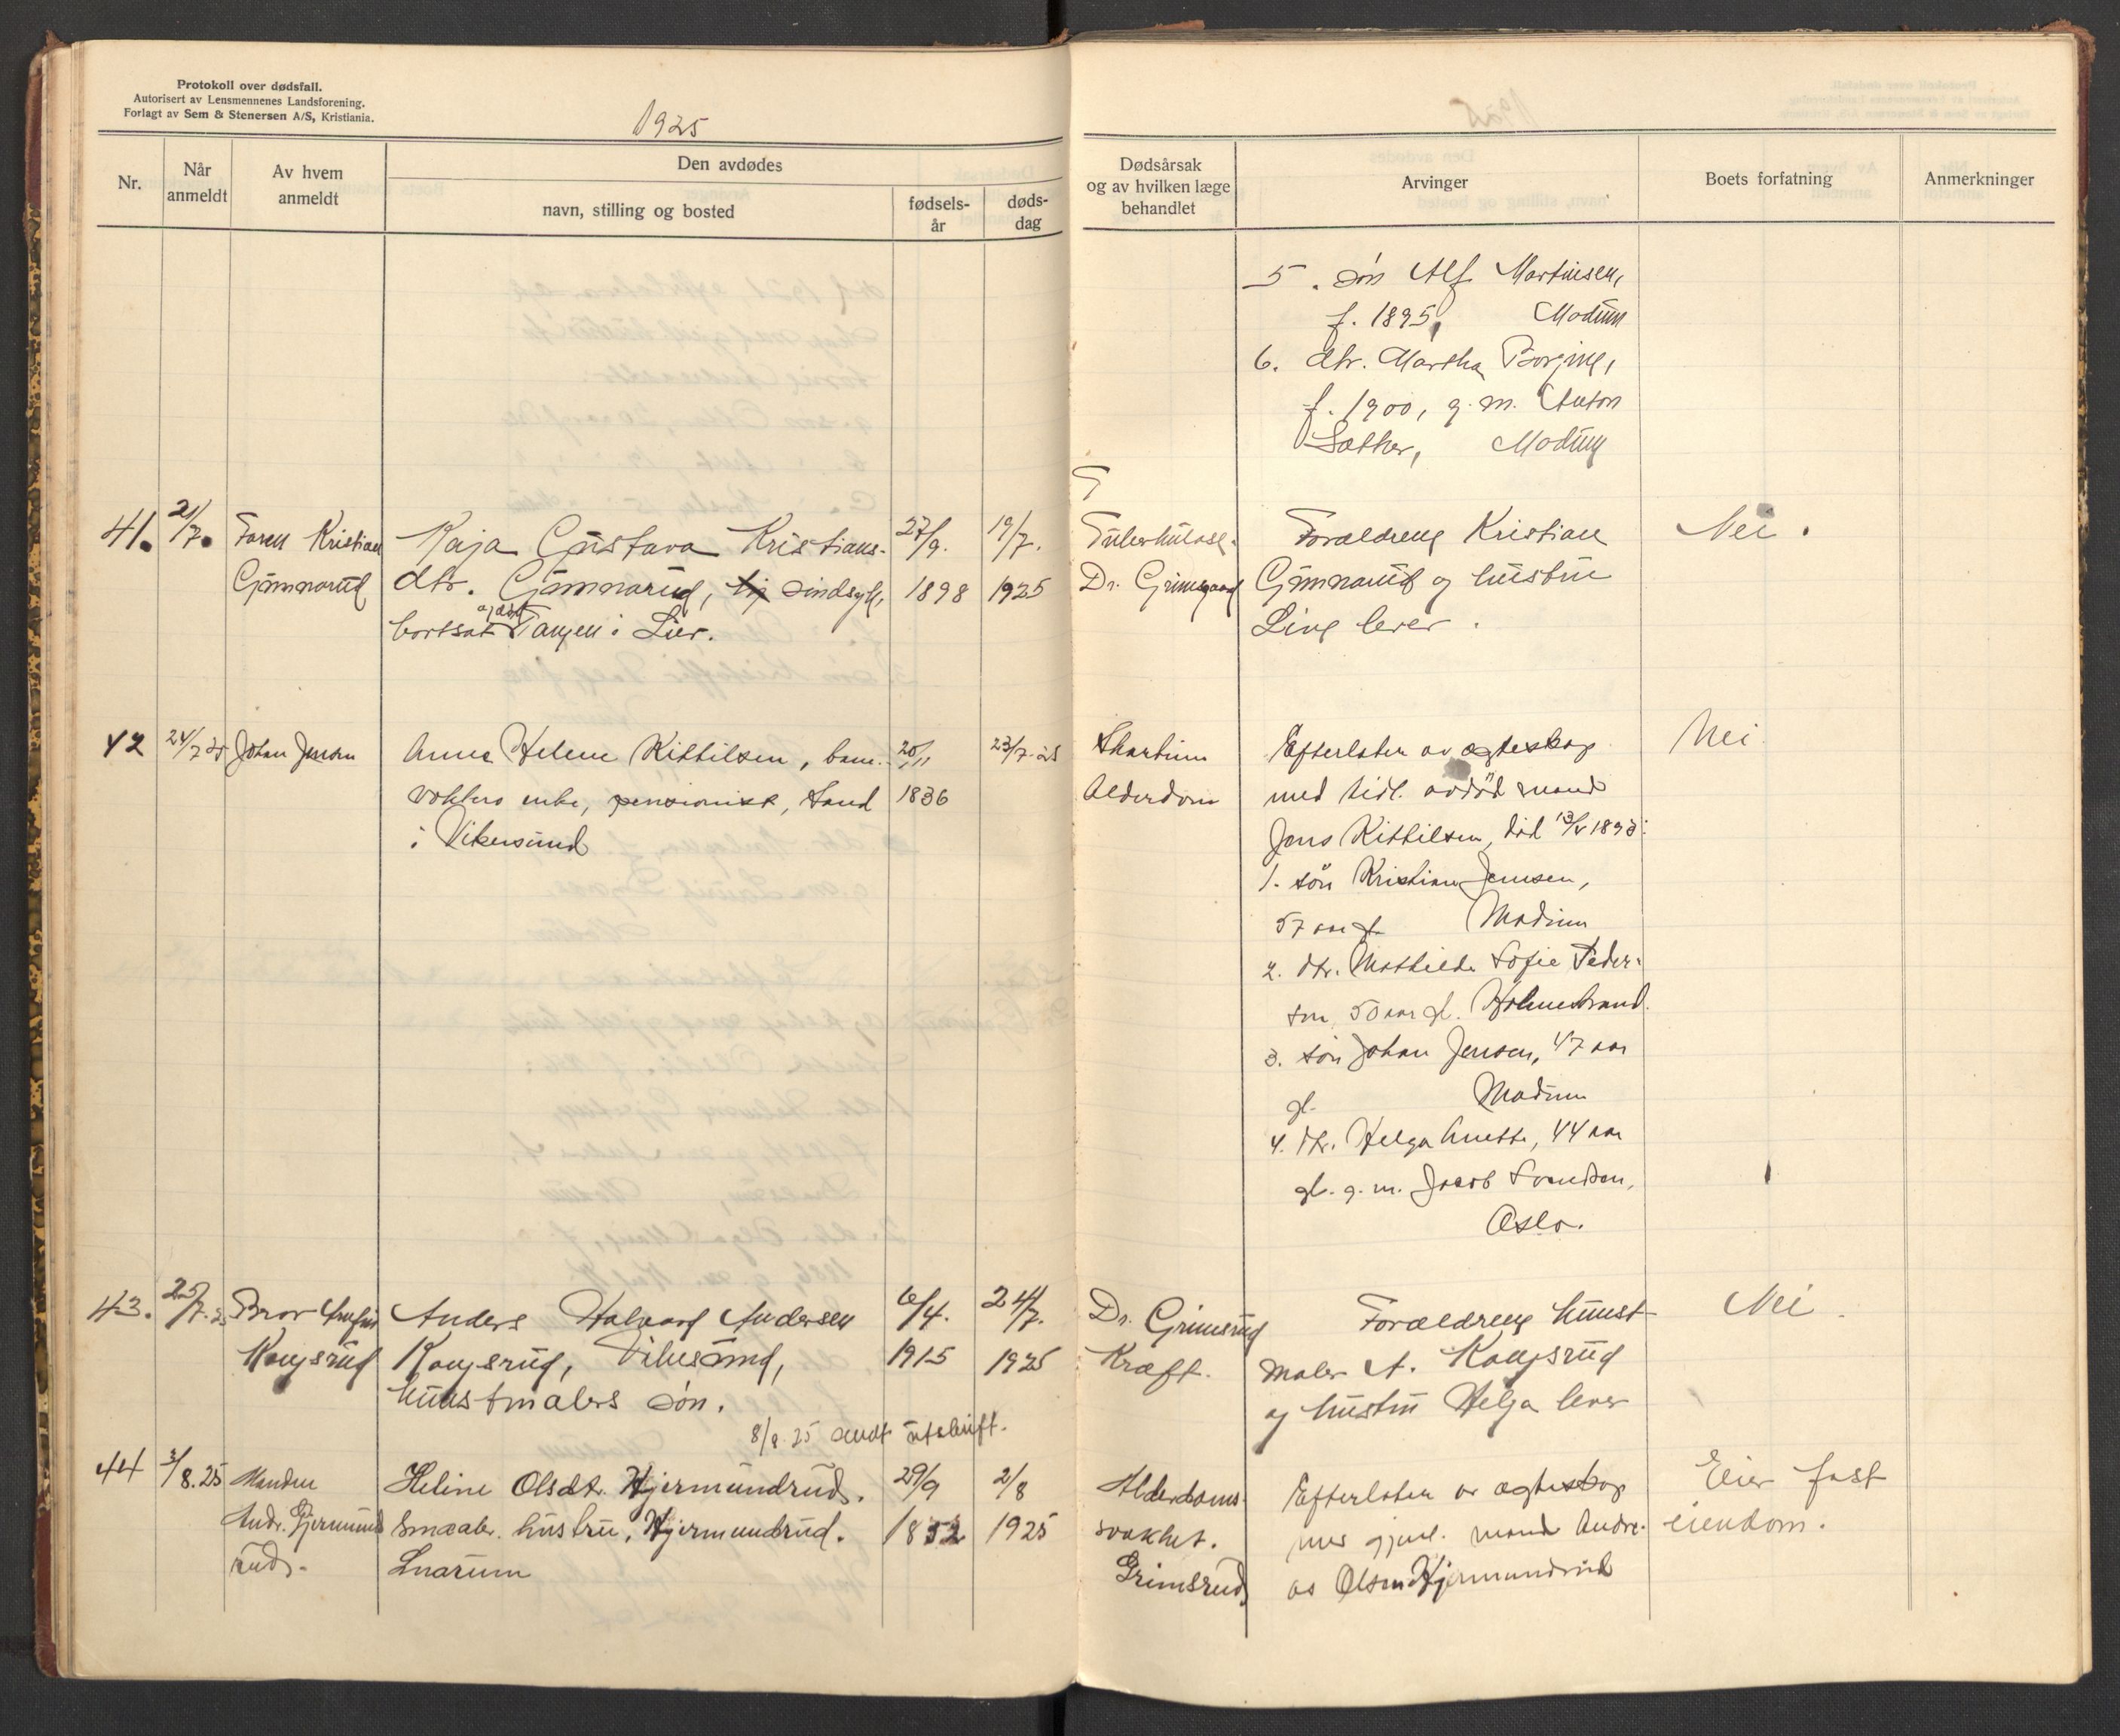 Protokoll over dødsfall.
Autorisert av Lensmennenes Landsforening.
Forlagt av Sem & Stenersen A/S, Kristiania.
1925
Nr.
Når anmeldt
Av hvem anmeldt
Den avdødes
navn, stilling og bosted
fødsels-
år
døds-
dag
Dødsårsak
og av hvilken læge
behandlet
Arvinger
Boets forfatning
Anmerkninger
5. søn Alf Martinsen,
f. 1895, Modum
6. dtr. Martha
f. 1900, g. m. Anton
Sæther, Modum
41. 21/7. Faren Kristian
Gunnarud
Kaja Gustava Kristians-
dtr. Gunnarud, sindsyk,
bortsat Tangen i Lier.
27/9.
1898
19/7.
1925
Tuberkulose.
Dr. Grimsgaard
Forældrene Kristian
Gunnarud og hustru
Line lever.
Nei.
42 24/7 25 Johan Jensen
Anne Helene Kittilsen, bane-
vokters enke, pensionist, Sand
i Vikersund
20/11
1836
23/7-25
Alderdom
Efterlater av ægteskap
med tidl. avdød mand
Jens Kittilsen, død
1. søn Kristian Jensen,
57 aar gl. Modum
2. dtr. Mathilde Sofie Peder-
sen, 50 aar gl. Holmestrand.
3. søn Johan Jensen, 47 aar
gl. Modum
4. dtr. Helga Anette, 44 aar
gl. g. m. Jacob Svendsen,
Oslo.
Nei
43. 25/7. 25 Bror Arnfin
Kongsrud
Anders Halvard Andersen
Kongsrud, Vikesund,
kunstmalers søn.
6/4.
1915
24/7.
1925
Dr. Grimsrud
Kræft.
Forældrene kunst-
maler A. Kongsrud
og hustru Helga lever
Nei.
8/8 25 sendt utskrift.
44 3/8.25 Manden
Andr. Gjermund
rud.
Heline Olsdt. Hjermundrud.
Smaabr. hustru, Hjermundrud.
Snarum
29/9
1852
2/8
1925
Alderdoms-
svakhet.
Grimsrud.
Efterlater av ægteskap
med gjenl. mand Andre-
as Olsen Hjermundrud
Eier fast
eiendom.